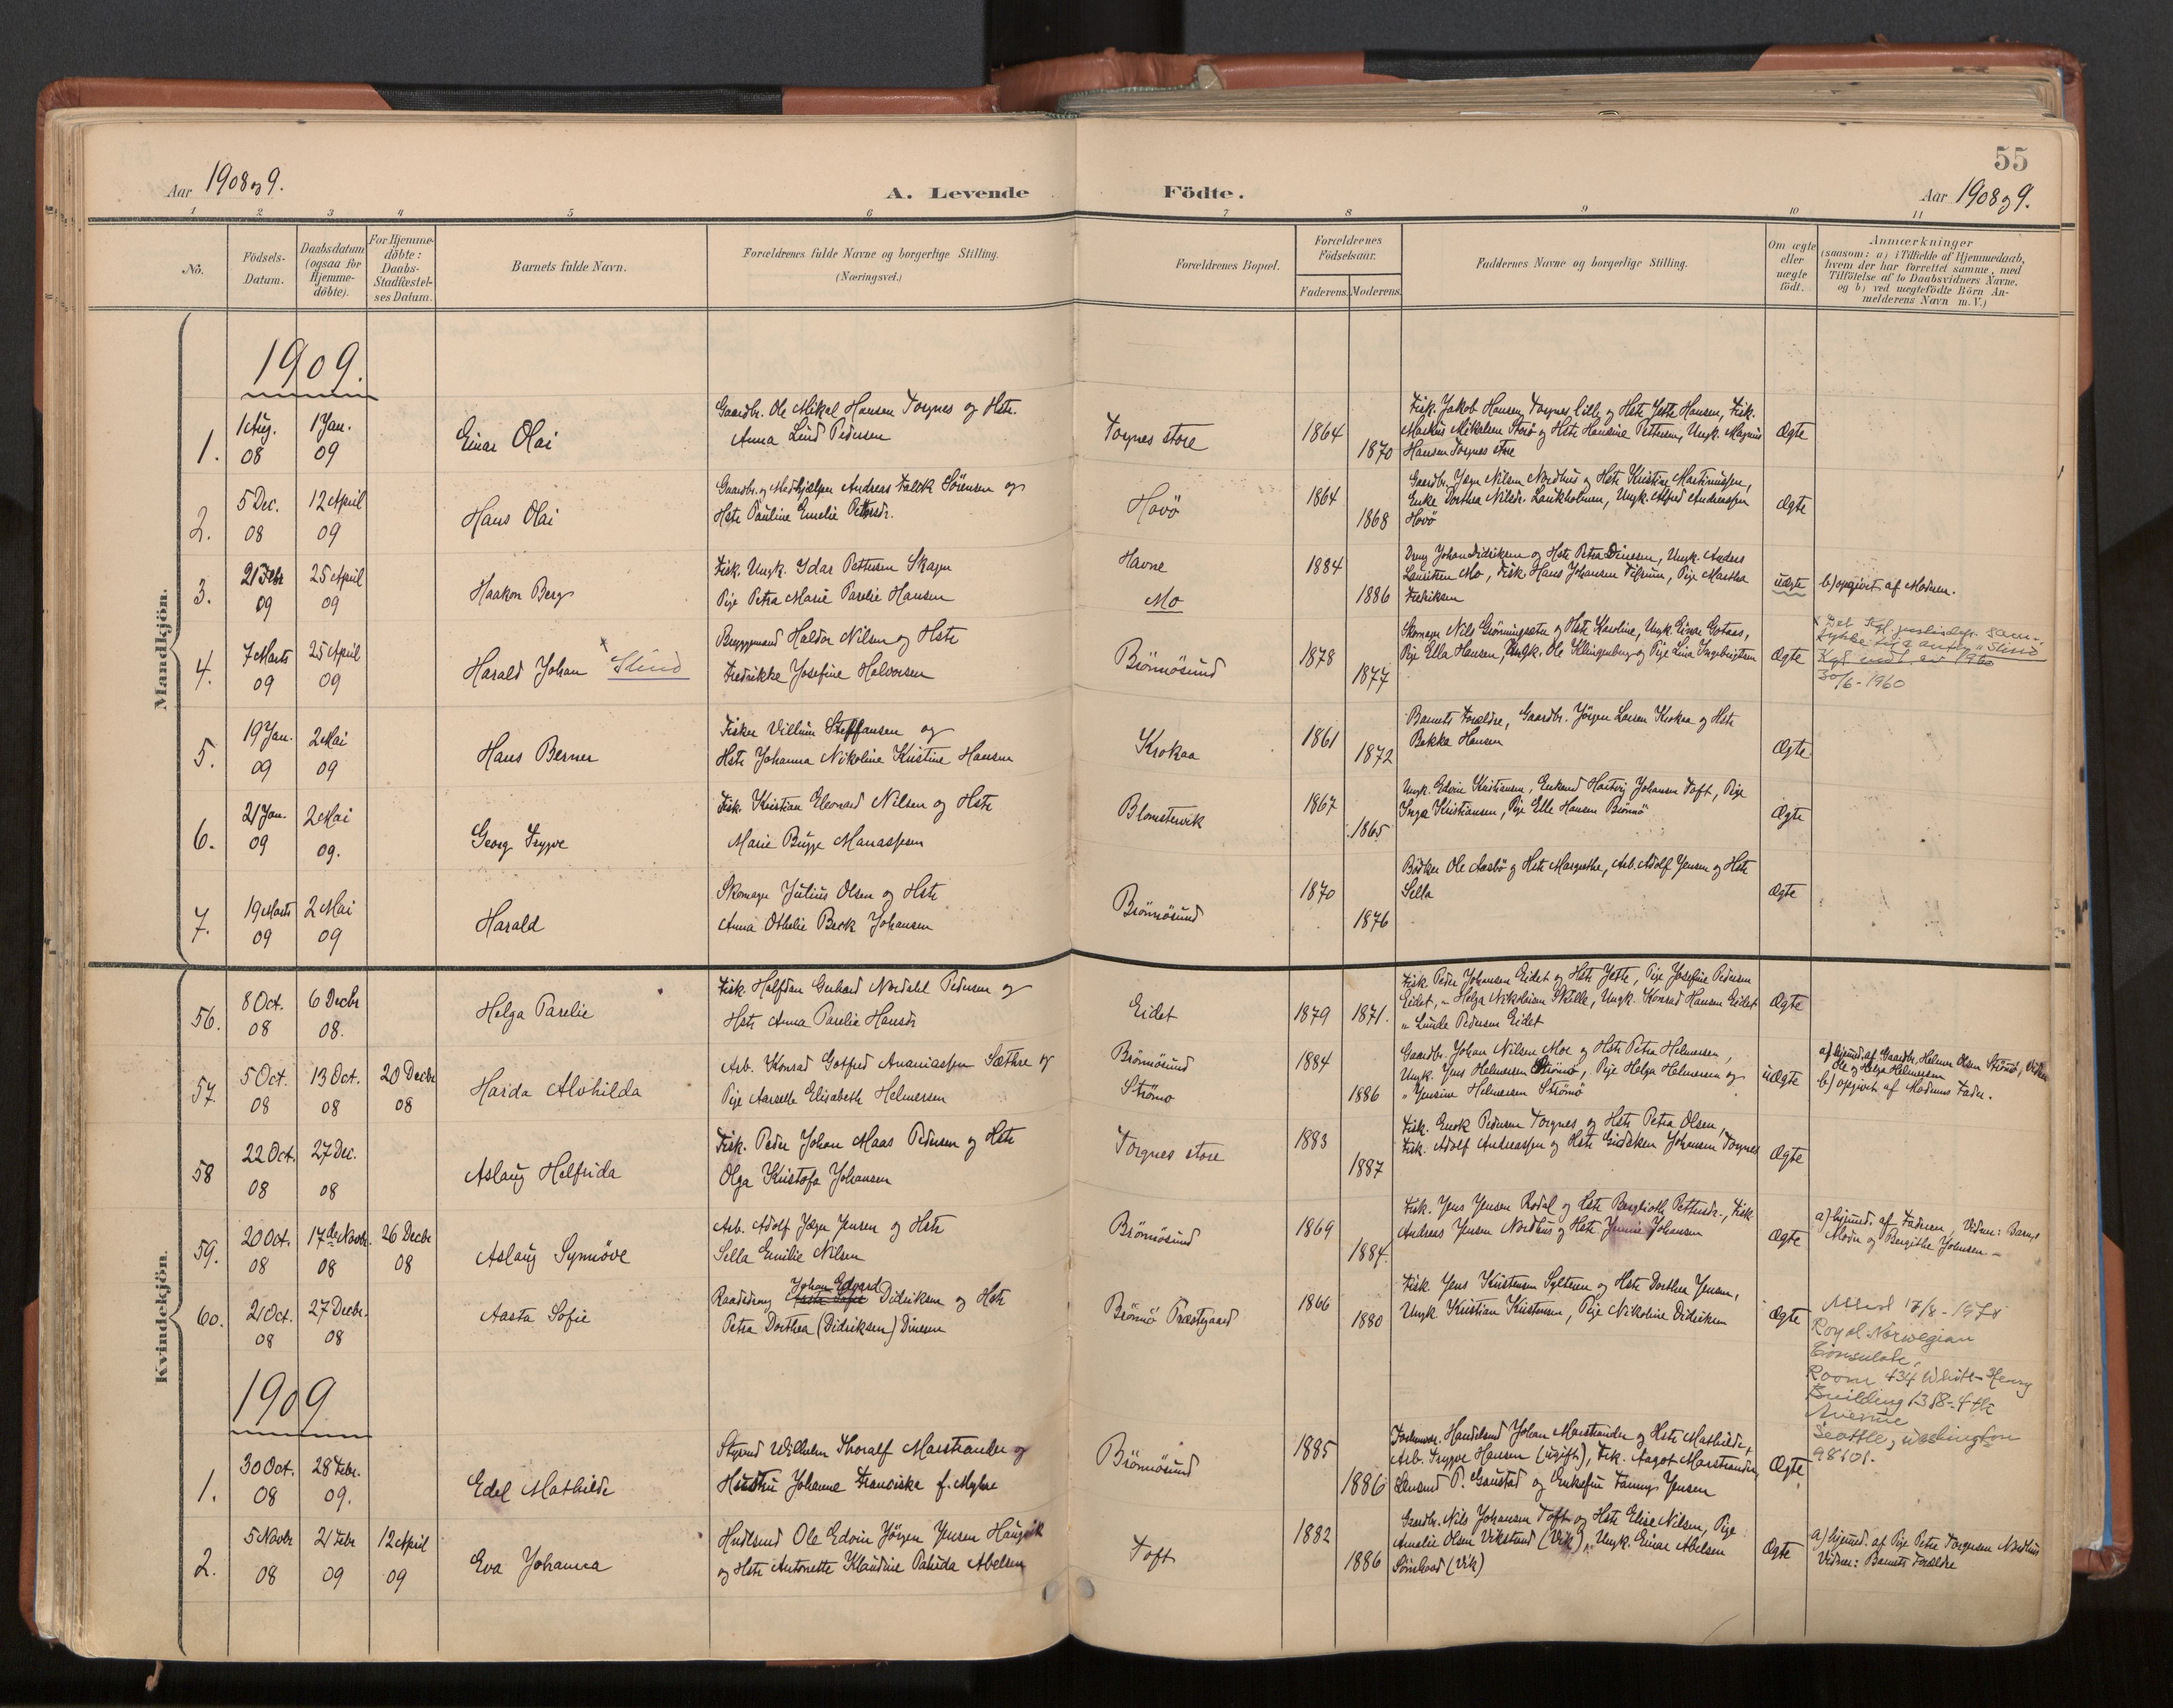 55
Aar 1908 og 9.
A. Levende Födte.
Aar 1908 og 9.
1 2 3 4 5 6 7 8 9 10 11
No.
Födsels-Datum.
Daabsdatum (ogsaa for Hjemme-döbte).
For Hjemme-döbte: Daabs-Stadfæstel-ses Datum.
Barnets fulde Navn.
Forældrenes fulde Navne og borgerlige Stilling.
(Næringsvei.)
Forældrenes Bopæl.
Forældrenes Födselsaar.
Faderens. Moderens.
Faddernes Navne og borgerlige Stilling.
Om ægte eller uægte födt.
Anmærkninger
(saasom: a) i Tilfælde af Hjemmedaab,
hvem der har forrettet samme, med
Tilföielse af to Daabsvidners Navne,
og b) ved uægtefödte Börn An-
melderens Navn m. V.)
Mandkjön.
1909.
1. 1 Aug. 08 1 Jan. 09 Einar Olai
Gaardbr. Ole Mikal Hansen Torgnes og Hstr.
Anna Lind Pedersen
Torgnes store 1864 1870
Fisk. Jakob Hansen Torgnes lille og Hstr Jette Hansen, Fisk.
Markus Mikalsen Storö og Hstr Hansine Pettersen, Ungk. Magnus
Hansen Torgnes store
Ægte
2. 5 Dec. 08 12 April 09 Hans Olai
Gaardbr. og Medhjælper Andreas Falck Sörensen og
Hstr Pauline Emelie Pettersdr.
Hovö 1864 1868
Gaardbr. Jæger Nilsen Nordhus og Hstr Kristine Martinussen,
Enke Dorthea Nilsdr. Laukholmen, Ungk. Alfred Andreassen
Hovö
Ægte
3. 21 Febr 09 25 April 09 Haakon Berg
Fisk. Ungk. Idar Pettersen Skagen
Pige Petra Marie Parelie Hansen
Havne
Mo
1884 1886
Dreng Johan Didriksen og Hstr Petra Dinesen, Ungk. Anders
Lauritzen Mo, Fisk. Hans Johansen Tilrum, Pige Martha
Fredriksen
uægte
b) opgivet af Moderen.
4. 7 Marts 09 25 April 09 Harald Johan x Slind
Bryggemand Haldor Nilsen og Hstr
Fredrikke Josefine Halvorsen
Brönnösund 1878 1877
Skomager Nils Grönningsæter og Hstr Karoline, Ungk. Einar Gotaas,
Pige Ella Hansen, Ungk. Ole Klingenberg og Pige Lina Ingebrigtsen
Ægte
x Det kgl. justisdep. sam-
tykke til å antg "Slind"
30/6-1960
5. 19 Jan. 09 2 Mai 09 Hans Berner
Fisker Villum Steffansen og
Hstr Johanna Nikoline Kristine Hansen
Krokaa 1861 1872
Barnets Forældre, Gaardbr. Jörgen Larsen Krokaa og Hstr
Bekka Hansen
Ægte
6. 21 Jan. 09 2 Mai 09. Georg Trygve
Fisk. Kristian Eleonard Nilsen og Hstr
Marie Bugge Manassesen
Blomstervik 1867 1865
Ungk. Edvin Kristiansen, Enkemd Hartvig Johansen Toft, Pige
Inga Kristiansen, Pige Elle Hansen Brönnö
Ægte
7. 19 Marts 09 2 Mai 09 Harald
Skomager Julius Olsen og Hstr
Anna Othelie Beck Johansen
Brönnösund 1870 1876
Bödker Ole Aasbö og Hstr Margrethe, Arb. Adolf Jensen og Hstr
Sella
Ægte
Kvindekjön.
56. 8 Oct. 08 6 Decbr 08. Helga Parelie
Fisk. Halfdan Gerhard Nordahl Pedersen og
Hstr Anna Parelie Hansdr
Eidet 1879 1871.
Fisk. Peder Johansen Eidet og Hstr Jette, Pige Josefine Pedersen
Eidet, " Helga Nikolaisen Skille, Ungk. Konrad Hansen Eidet
" Lunde Pedersen Eidet
Ægte
57. 5 Oct. 08 13 Oct. 08 20 Decbr 08 Harda Alvhilda
Arb. Konrad Gotfred Ananiassen Sæthre og
Pige Aarselle Elisabeth Helmersen
Brönnösund
Strömö
1884 1886
Gaardbr. Johan Nilsen Moe og Hstr Petra Helmersen,
Ungk. Jens Helmersen Strömö, Pige Helga Helmersen og
" Jensine Helmersen Strömö
uægte
a) hjemmed. af Gaardbr. Helmer Olsen Strömö, Vidner:
Ole og Helga Helmersen
b) opgivet af Moderens Fader.
58 22 Oct. 08 27 Dec. 08 Aslaug Helfrida
Fisk. Peder Johan Maas Pedersen og Hstr
Olga Kristofa Johansen
Torgnes store 1883 1887
Fisk. Enok Pedersen Torgnes og Hstr Petra Olsen,
Fisk. Adolf Andreassen og Hstr Gidsken Johansen Torgnes
Ægte
59. 20 Oct. 08 17de Novbr. 08 26 Decbr 08 Aslaug Synnöve
Arb. Adolf Jæger Jensen og Hstr
Sella Emilie Nilsen
Brönnösund 1869 1884.
Fisk. Jens Jensen Rodal og Hstr Berglioth Pettersdr., Fisk
Andreas Jensen Nordhus og Hstr Jennie Johansen
Ægte
a) hjemmed. af Faderen, Vidner: Barnets
Moder og Bergithe Johnsen -
60. 21 Oct. 08 27 Decbr. 08 Aasta Sofie
Johan Edvard
Raadsdreng Aasta Sofie Didriksen og Hstr
Petra Dorthea (Didriksen) Dinesen
Brönnö Præstgaard 1866 1880
Fisk Jens Kristensen Sylteren og Hstr Dorthea Jensen,
Ungk Kristian Kristensen, Pige Nikoline Didriksen
Ægte
Royal Norwegian
Consulate,
Room 434 White-Henry
Building 1318-4th
Avenue
Seattle, Washington
98101.
1909
1. 30 Oct. 08 28 Febr. 09. Edel Mathilde
Styrmd Wilhelm Thoralf Marstrander og
Hustru Johanne Franciska f. Myhre
Brönnösund 1885 1886
Handelsmd Johan Marstrander og Hstr Mathilde,
Arb. Trygve Hansen (ugift), Frk. Aagot Marstrander,
Lensmd P. Gaustad og Enkefru Fanny Jensen
Ægte
2. 5 Novbr 08 21 Febr 09 12 April 09 Eva Johanna
Hndlsmd Ole Edvin Jörgen Jensen Haugvik
og Hstr Antonette Klaudine Parida Abelsen
Toft 1882 1886
Gaardbr. Nils Johansen Toft og Hstr Elise Nilsen, Pige
Amalie Olsen Vikstrand (Vik), Ungk. Einar Abelsen
(Vik)
Ægte
a) hjemmed. af Pige Petra Torgersen Nordhus
Vidner: Barnets Forældre